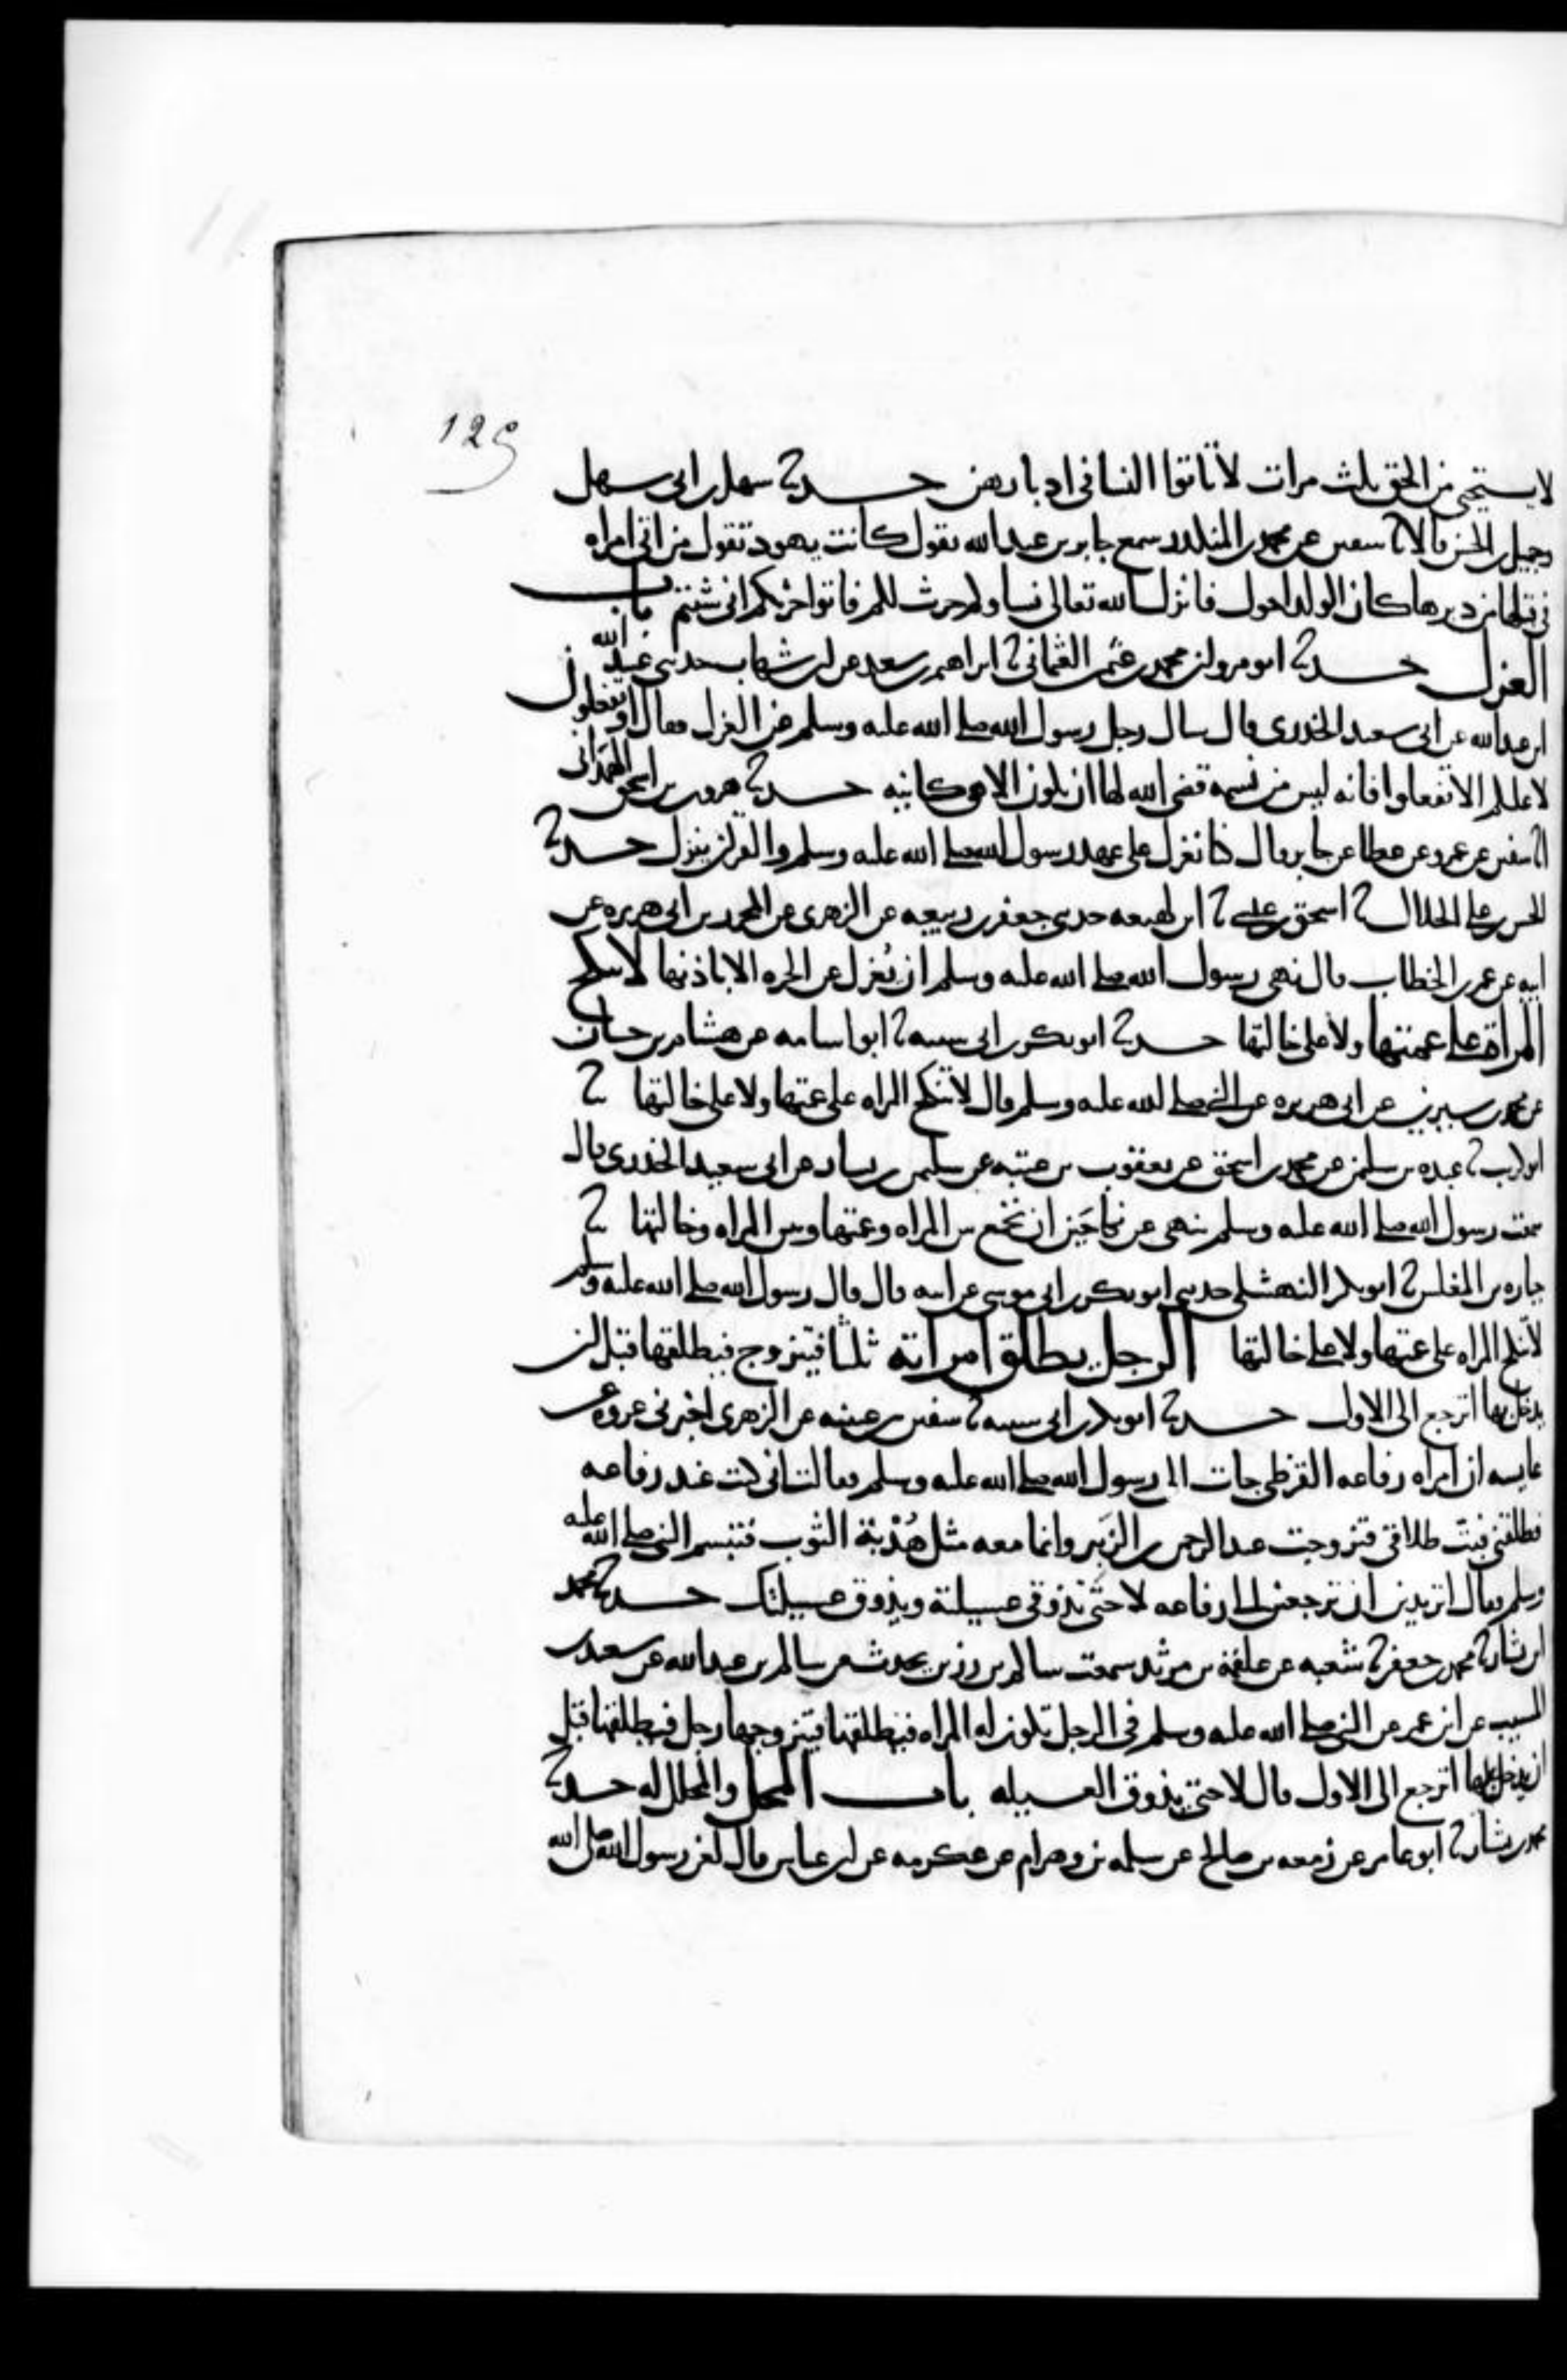 129
لا يستحيي من الحق ثلث مرات لا تاتوا النسا في ادبارهن حدثنا سهل بن ابي سهل
وجميل بن الحسن قالا ثنا سفين عن محمد بن المنكدر سمع جابر بن عبد الله يقول كانت يهود تقول من اتى امراه
في قبلها من دبرها كان الولد احول فانزل الله تعالى نساوكم حرث لكم فاتوا حرثكم انى شئتم باب
العزل حدثنا ابو مرون محمد بن عثمن العثماني ثنا ابراهيم بن سعد عن ابن شهاب حدثني عبيد الله
ابن عبد الله عن ابي سعيد الخدري قال سال رجل رسول الله صلى الله عليه وسلم عن العزل فقال او تفعلون
لا عليكم الا تفعلوا فانه ليس من نسمة قضى الله لها ان تكون الا هي كاينه حدثنا هرون بن اسحق الهمداني
ثنا سفين عن عمرو عن عطا عن جابر قال كنا نعزل على عهد رسول الله صلى الله عليه وسلم والقران ينزل حدثنا
الحسن بن علي الخلال ثنا اسحق بن عيسى ثنا ابن لهيعه حدثني جعفر بن ربيعه عن الزهري عن المحرر بن ابي هريره عن
ابيه عن عمر بن الخطاب قال نهى رسول الله صلى الله عليه وسلم ان يُعزل عن الحره الا باذنها لا تنكح
المراة على عمتها ولا على خالتها حدثنا ابو بكر بن ابي شيبه ثنا ابو اسامه عن هشام بن حسان
عن محمد بن سيرين عن ابي هريره عن النبي صلى الله عليه وسلم قال لا تنكح المراه على عمتها ولا على خالتها ثنا
ابو كريب ثنا عبده بن سليمن عن محمد بن اسحق عن يعقوب بن عتبه عن سليمن بن يسار عن ابي سعيد الخدري قال
سمعت رسول الله صلى الله عليه وسلم ينهى عن نكاحَين ان يجمع بين المراه وعمتها وبين المراه وخالتها ثنا
جباره بن المغلس ثنا ابو بكر النهشلي حدثني ابو بكر بن ابي موسى عن ابيه قال قال رسول الله صلى الله عليه وسلم
لا تنكح المراه على عمتها ولا على خالتها الرجل يطلق امراته ثلثا فتتزوج فيطلقها قبل ان
يدخل بها اترجع الى الاول حدثنا ابو بكر بن ابي شيبه ثنا سفين بن عيينه عن الزهري اخبرني عروه عن
عايشه ان امراه رفاعه القرظي جات الى رسول الله صلى الله عليه وسلم فقالت اني كنت عند رفاعه
فطلقني فبتّ طلاقي فتزوجت عبد الرحمن بن الزَبير وانما معه مثل هُدْبة الثوب فتبسم النبي صلى الله عليه
وسلم فقال اتريدين ان ترجعي الى رفاعه لا حتى تذوقي عسيلته ويذوق عسيلتك حدثنا محمد
ابن بشار ثنا محمد بن جعفر ثنا شعبه عن علقمة بن مرثد سمعت سالم بن رزين يحدث عن سالم بن عبد الله عن سعيد بن
المسيب عن ابن عمر عن النبي صلى الله عليه وسلم في الرجل تكون له المراه فيطلقها فيتزوجها رجل فيطلقها قبل
ان يدخل بها اترجع الى الاول قال لا حتى يذوق العسيله باب المحل والمحلل له حدثنا
محمد بن بشار ثنا ابو عامر عن زمعه بن صالح عن سلمه بن وهرام عن عكرمه عن ابن عباس قال لعن رسول الله صلى الله